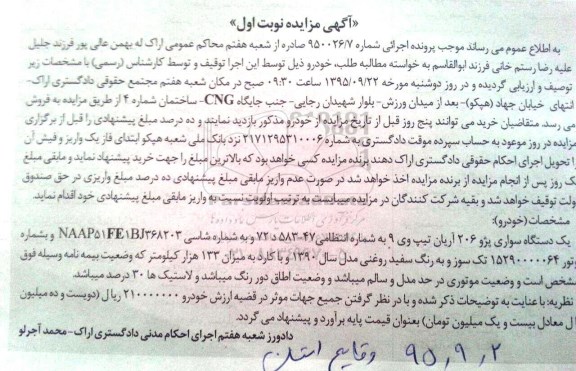 «آگهی مزایده نوبت اول»
به اطلاع عموم می رساند موجب پرونده اجرائی شماره ۹۵۰۰۲۶/۷ صادره از شعبه هفتم محاکم عمومی اراک له بهمن عالی پور فرزند جلیل
علیه رضا رستم خانی فرزند ابوالقاسم به خواسته مطالبه طلب، خودرو ذیل توسط این اجرا توقیف و توسط کارشناس (رسمی) با مشخصات زیر
توصیف و ارزیابی گردیده و در روز دوشنبه مورخه ۱۳۹۵/۰۹/۲۲ ساعت ۰۹:۳۰ صبح در مکان شعبه هفتم مجتمع حقوقی دادگستری اراک-
انتهای خیابان جهاد (هپکو)- بعد از میدان ورزش - بلوار شهیدان رجایی- جنب جایگاه CNG- ساختمان شماره ۴ از طریق مزایده به فروش
می رسد. متقاضیان خرید می توانند پنج روز قبل از تاریخ مزایده از خودرو مذکور بازدید نمایند و ده درصد مبلغ پیشنهادی را قبل از برگزاری
مزایده در روز موعود به حساب سپرده موقت دادگستری به شماره ۲۱۷۱۲۹۵۳۱۰۰۰۶ نزد بانک ملی شعبه هپکو ابتدای فاز یک واریز و فیش آن
را تحویل اجرای احکام حقوقی دادگستری اراک دهند برنده مزایده کسی خواهد بود که بالاترین مبلغ را جهت خرید پیشنهاد نماید و مابقی مبلغ
یک روز پس از انجام مزایده از برنده مزایده اخذ خواهد شد در صورت عدم واریز مابقی مبلغ پیشنهادی ده درصد مبلغ واریزی در حق صندوق
دولت توقیف خواهد شد و بقیه شرکت کنندگان در مزایده میبایست به ترتیب اولویت نسبت به واریز مابقی مبلغ پیشنهادی خود اقدام نماید.
مشخصات (خودرو):
یک دستگاه سواری پژو ۲۰۶ آریان تیپ وی ۹ به شماره انتظامی ۴۷-۵۸۳ د ۷۲ و به شماره شاسی NAAP۵۱FE۱BJ۳۶۸۲۰۳ و بشماره
موتور ۱۵۲۹۰۰۰۰۶۴ تک سوز و به رنگ سفید روغنی مدل سال ۱۳۹۰ و با کارد به میزان ۱۳۳ هزار کیلومتر که وضعیت بیمه نامه وسیله فوق
مشخص است و وضعیت موتوری در حد مدل و سالم میباشد و وضعیت اطاق دور رنگ میباشد و لاستیک ها ۳۰ درصد میباشد.
نظریه: با عنایه به توضیحات ذکر شده و با در نظر گرفتن جمیع جهات موثر در قضیه ارزش خودرو ۲۱۰۰۰۰۰۰۰ ریال (دویست و ده میلیون
ریال معادل بیست و یک میلیون تومان) بعنوان قیمت پایه برآورد و پیشنهاد می گردد.
دادورز شعبه هفتم اجرای احکام مدنی دادگستری اراک- محمد آجرلو
۹۵،۹،۲ وقایع استان